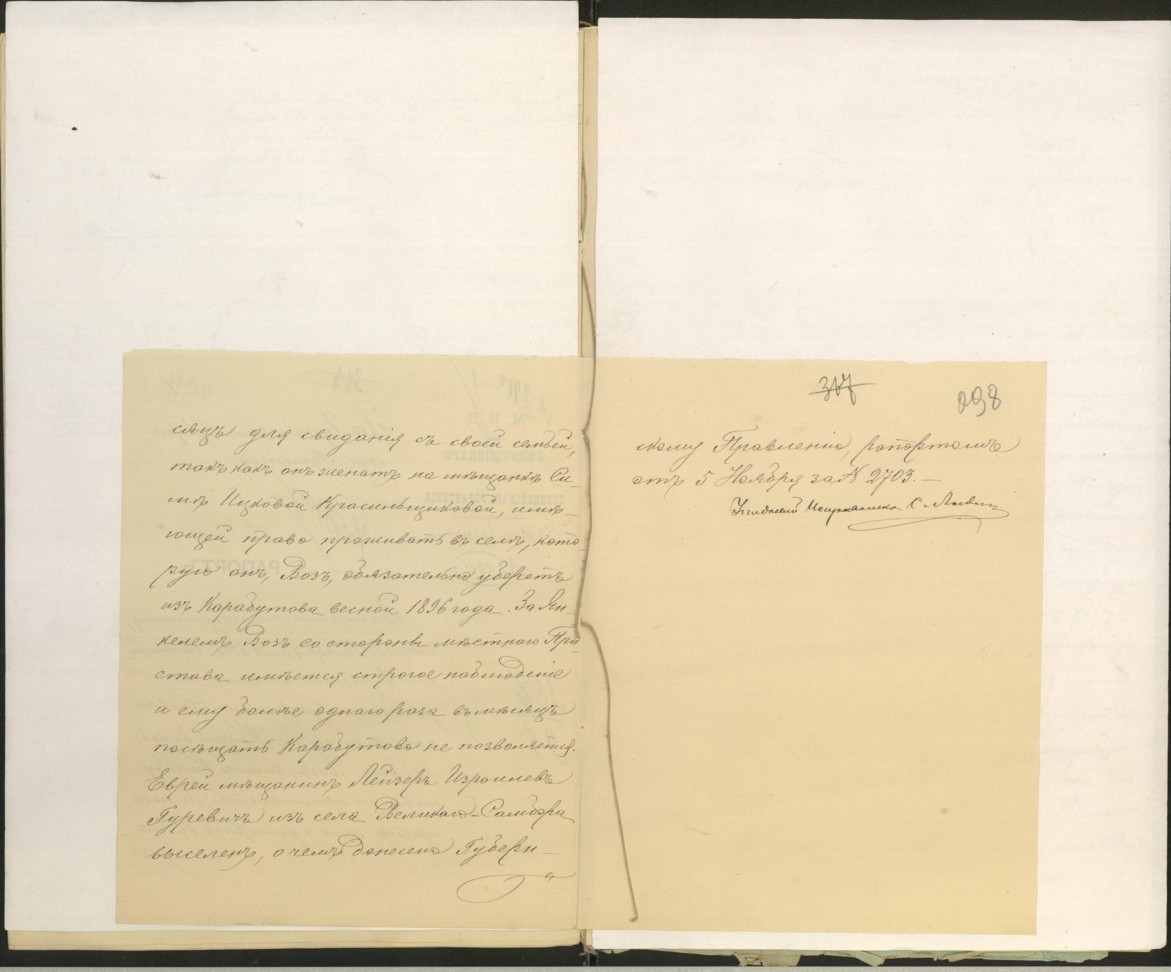 сяцъ для свиданія съ своей семьей,
такъ какъ онъ женатъ на мѣщанкѣ Си-
мѣ Ицковой Красильщиковой, имѣ-
ющей право проживать въ селѣ, кото-
рую онъ, Возъ, обязательно уберетъ
изъ Карабутова весной 1896 года. За Ян-
келемъ Возъ со стороны мѣстнаго При
става имѣется строгое наблюденіе
и ему болѣе одного раза въ мѣсяцъ
посѣщать Карабутово не позволяется.
Еврей мѣщанинъ Лейзеръ Израилевъ
Гуревичъ изъ села Великаго-Самбора
выселенъ, о чемъ донесено Губерн-
317
298
скому Правленію, рапортомъ
отъ 5 Ноября за № 2703. –
Уѣздный Исправникъ